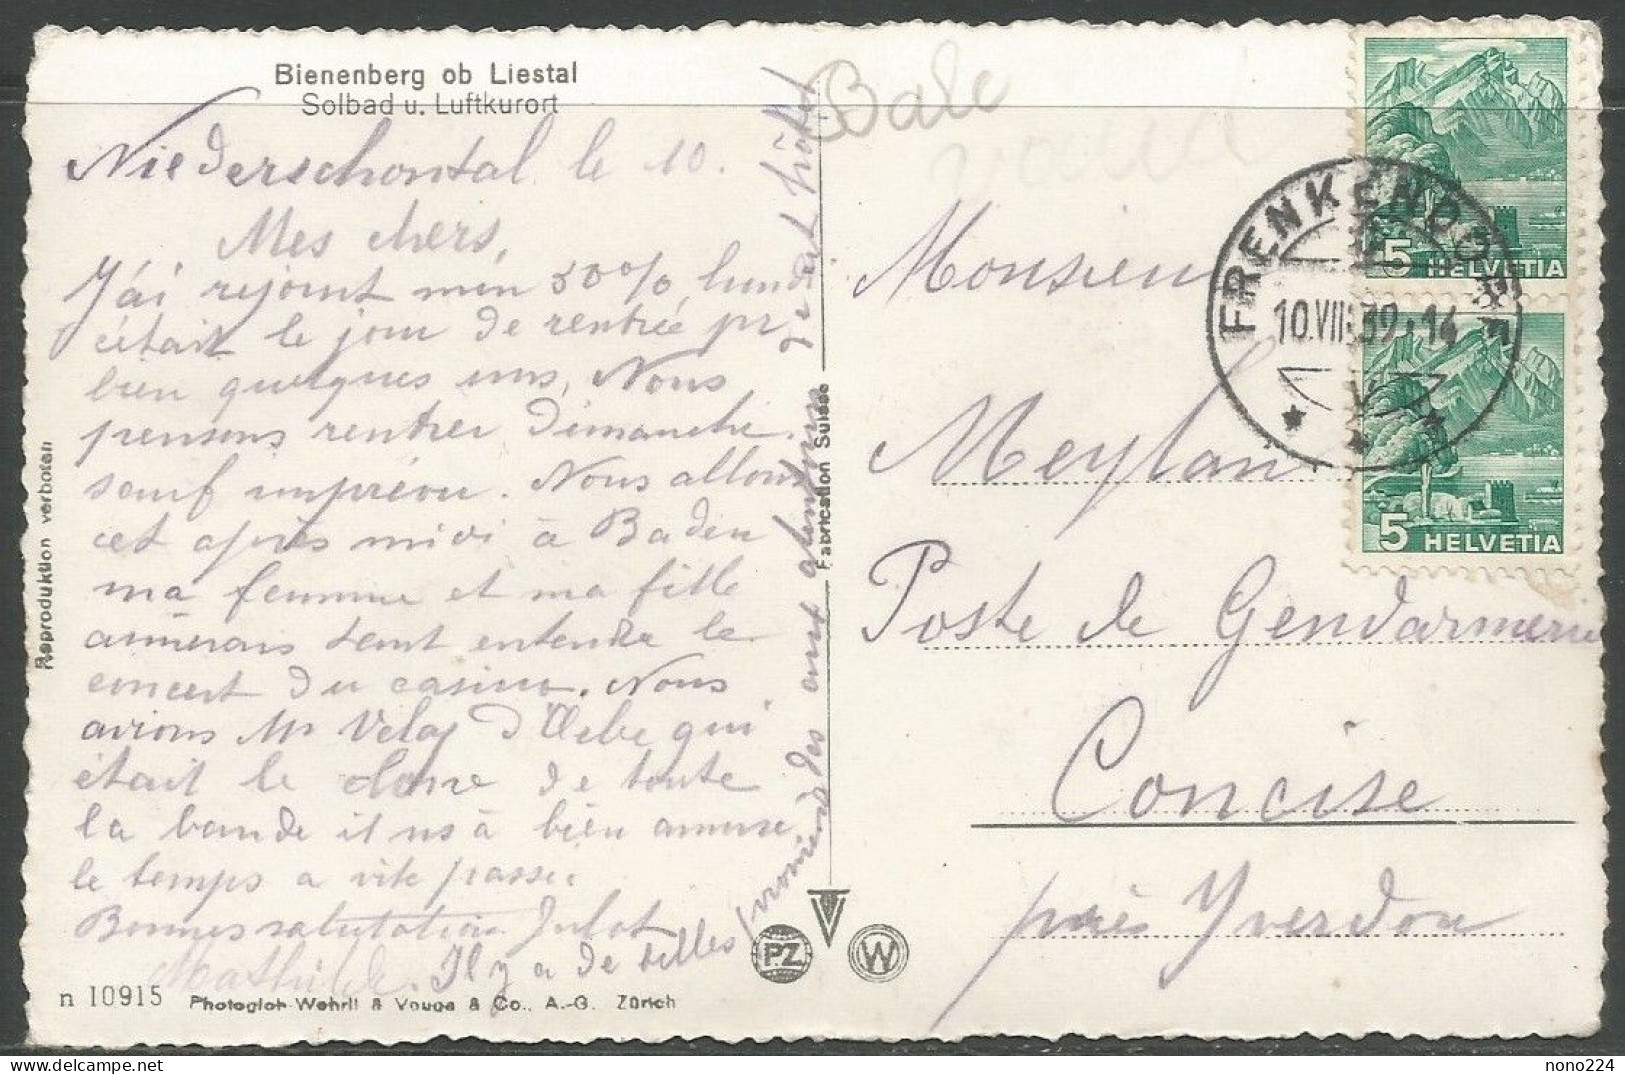 Bienenberg ob Liestal
Solbad u. Luftkurort
Niederschontal le 10.
Mes chers,
J'ai rejoint mon 50%, lundi
c'était le jour de rentrée pr
bien quelques uns, Nous
pensons rentrer Dimanche
sauf imprévu. Nous allons
cet après midi à Baden
ma femme et ma fille
aimerais tant entendre le
concert du casino. Nous
avions Mr Velay d'Orbe qui
était le de toute
la bande il ns à bien amusé
le temps a vite passé.
Bonnes salutation Julot
Mathilde. Il y a de belles
promenades aux alentours
de cet hôtel
Reproduktion verboten
n 10915 Photoglob-Wehrli & Vouga & Co., A.-G. Zürich
Fabrication Suisse
PZ
W
Bale
Vaud
Monsieur
Meylan
Poste de Gendarmerie
Concise
près Yverdon
FRENKENDORF
10.VIII.39.14
5 HELVETIA
5 HELVETIA
nono224